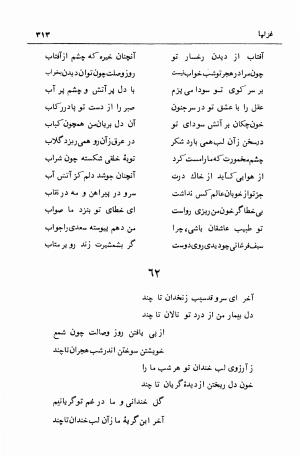 غزلها
۳۱۳
آفتاب از دیدن رخسار تو
آنچنان خیره که چشم از آفتاب
چون مرا در هجر تو شب خواب نیست
روز وصلت چون توان دیدن بخواب
بر سر کوی تو سودا می‌پزم
با دل پر آتش و چشم پر آب
عقل را با عشق تو در سر جنون
صبر را از دست تو پا در رکاب
خون چکان بر آتش سودای تو
آن دل بریان من همچون کباب
در سخن ز آن لب همی بارد شکر
در عرق زآن رو همی ریزد گلاب
چشم مخمورت که ما را مست کرد
توبهٔ خلقی شکسته چون شراب
از هوایی کآید از خاک درت
آنچنان جوشد دلم کز آتش آب
جز تو از خوبان عالم کس نداشت
سرو در پیراهن و مه در نقاب
بی‌خطا گر خون من ریزی رواست
ای خطای تو بنزد ما صواب
تو طبیب عاشقان باشی، چرا
من دهم پیوسته سعدی را جواب
سیف فرغانی چو دیدی روی دوست
گر بشمشیرت زند رو بر متاب
۶۲
آخر ای سرو قد سیب زنخدان تا چند
دل بیمار من از درد تو نالان تا چند
از پی یافتن روز وصالت چون شمع
خویشتن سوختن اندر شب هجران تا چند
ز آرزوی لب خندان تو هر شب ما را
خون دل ریختن از دیدهٔ گریان تا چند
گل خندانی و ما در غم تو گریانیم
آخر این گریهٔ ما زآن لب خندان تا چند